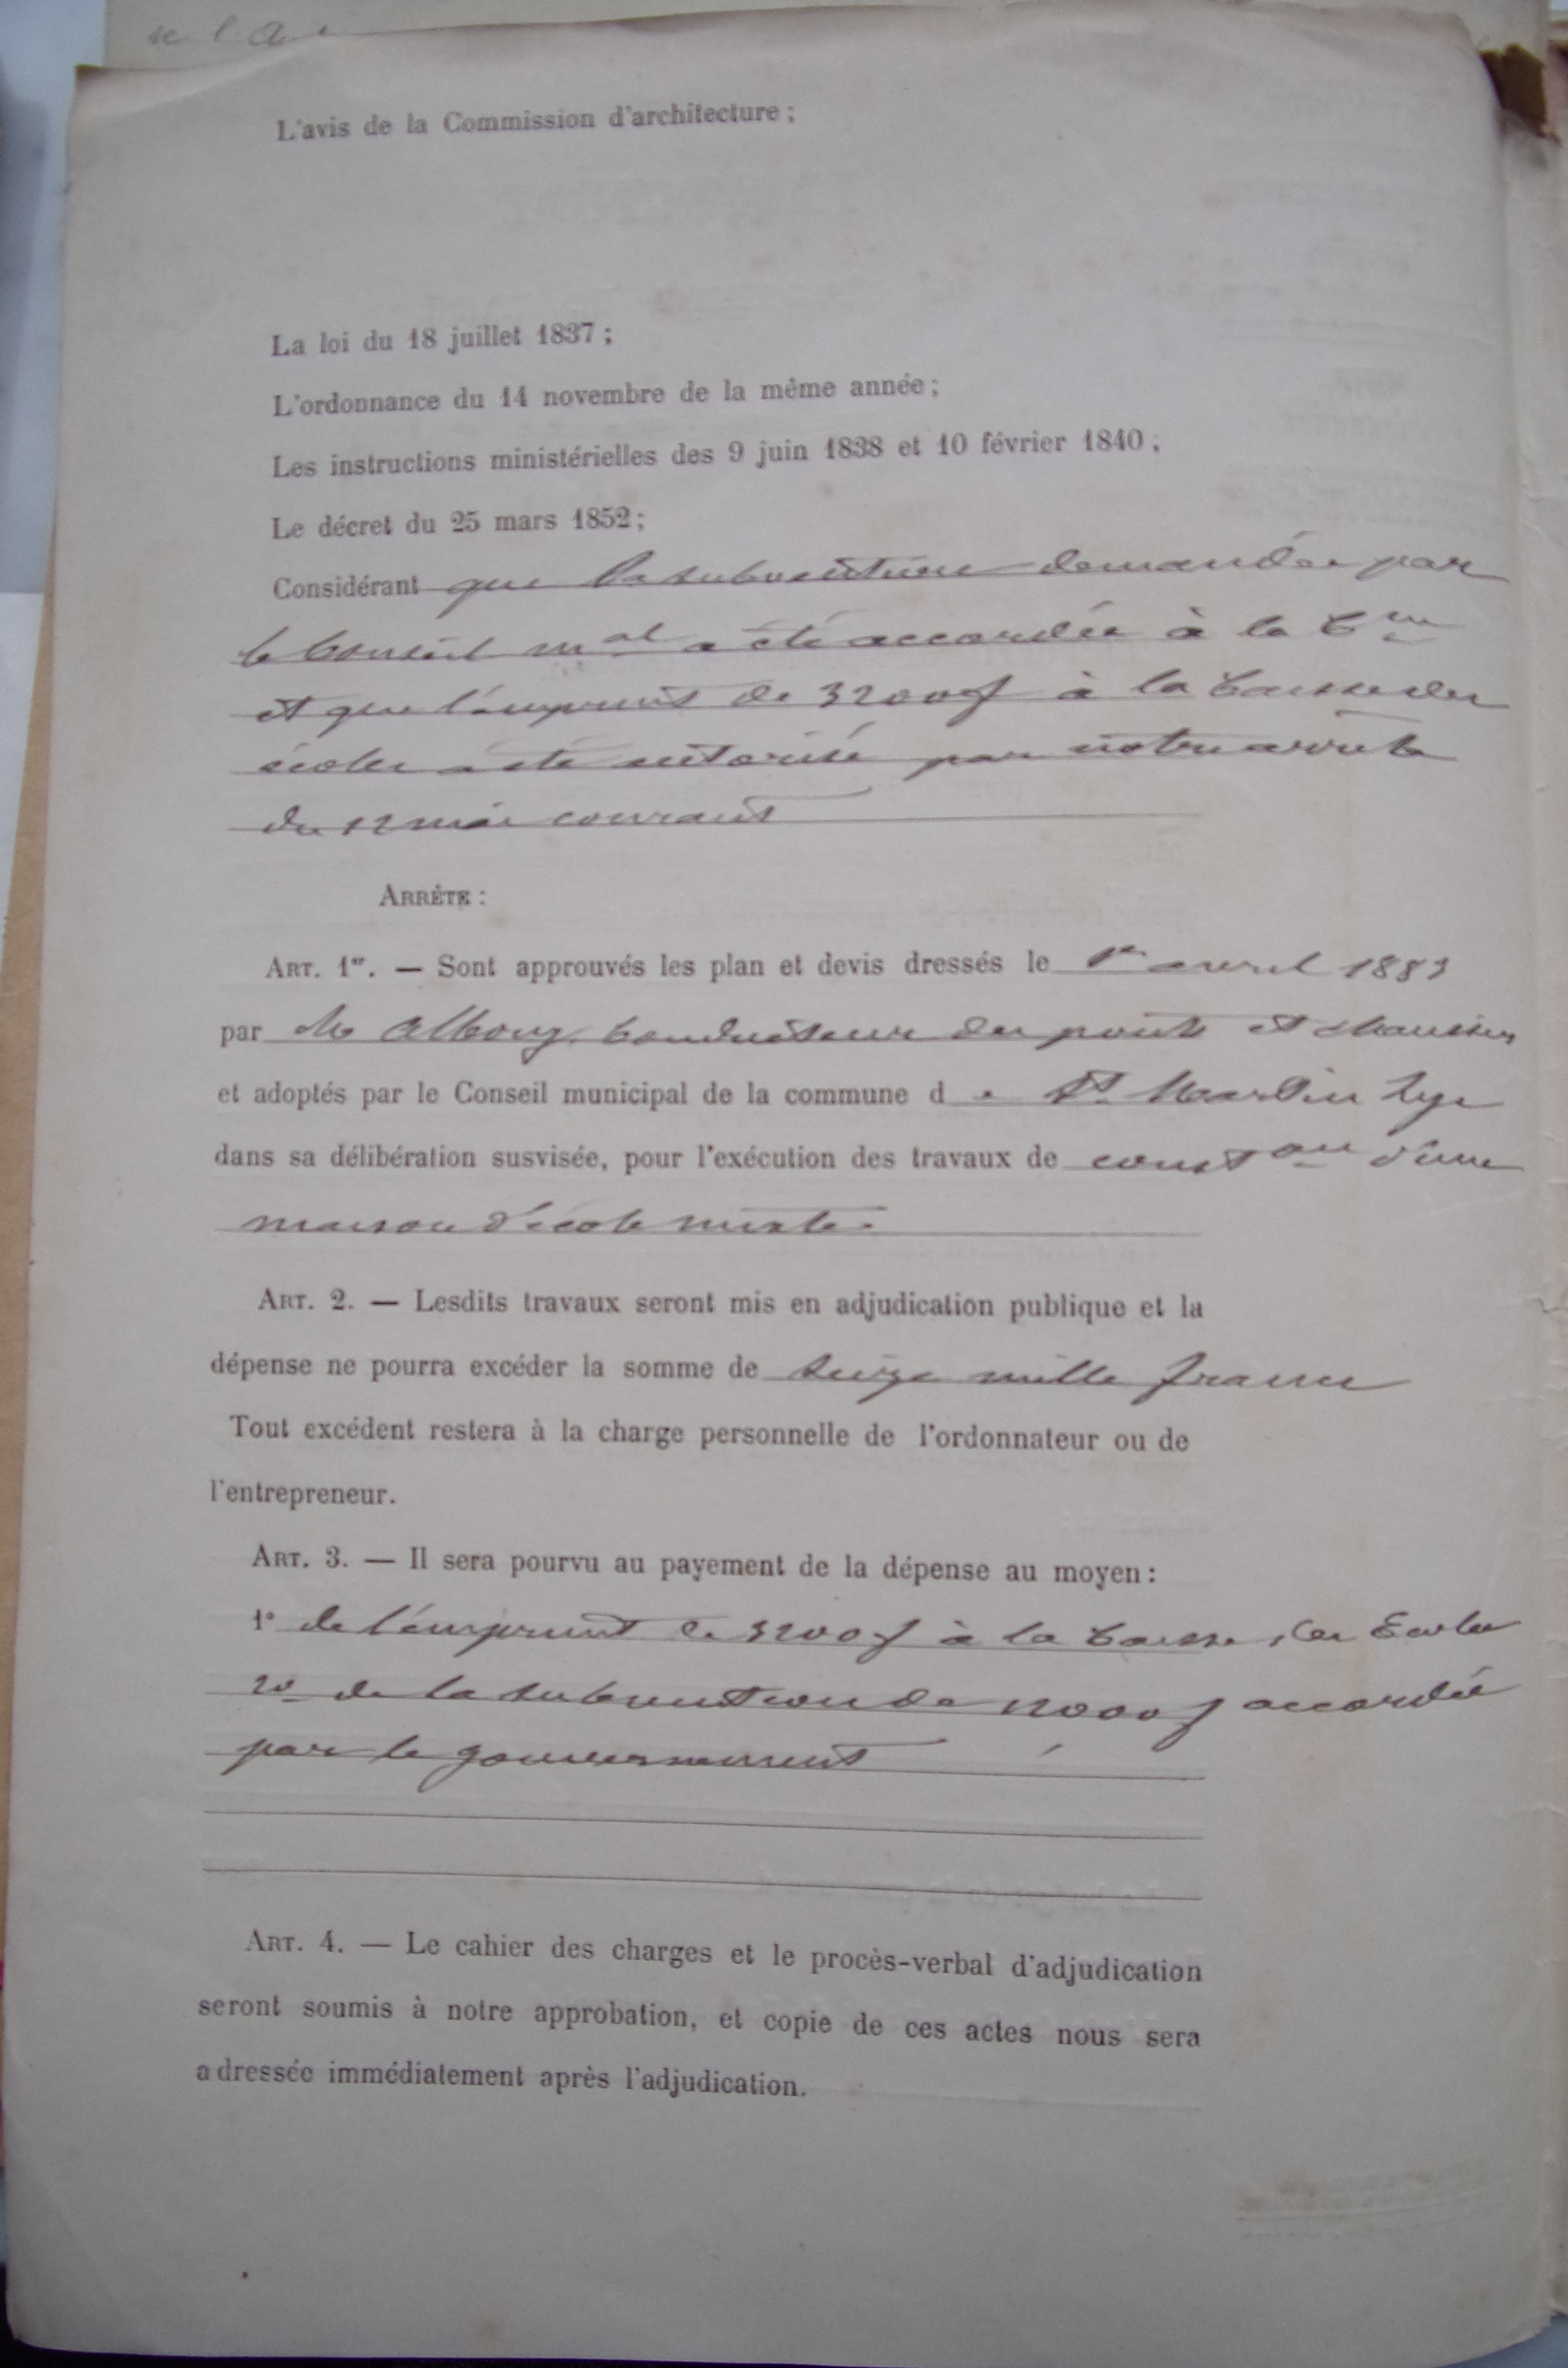 L'avis de la Commission d'architecture ;
La loi du 18 juillet 1837 ;
L'ordonnance du 14 novembre de la même année ;
Les instructions ministérielles des 9 juin 1838 et 10 février 1840 ;
Le décret du 25 mars 1852 ;
Considérant que la subvention demandée par
le Conseil mal a été accordée à la Cne
et que l'emprunt de 3200f à la Caisse des
écoles a été autorisé par notre arrêté
du 12 mai courant
ARRÊTE :
ART. 1er. — Sont approuvés les plan et devis dressés le 1er avril 1883
par Mr Albouy, Conducteur des ponts et chaussées
et adoptés par le Conseil municipal de la commune de St Martin Lys
dans sa délibération susvisée, pour l'exécution des travaux de constron d'une
maison d'école mixte.
ART. 2. — Lesdits travaux seront mis en adjudication publique et la
dépense ne pourra excéder la somme de seize mille francs
Tout excédent restera à la charge personnelle de l'ordonnateur ou de
l'entrepreneur.
ART. 3. — Il sera pourvu au payement de la dépense au moyen :
1° de l'emprunt de 3200f à la Caisse des Ecoles
2° de la subvention de 12000f accordée
par le gouvernement
ART. 4. — Le cahier des charges et le procès-verbal d'adjudication
seront soumis à notre approbation, et copie de ces actes nous sera
adressée immédiatement après l'adjudication.